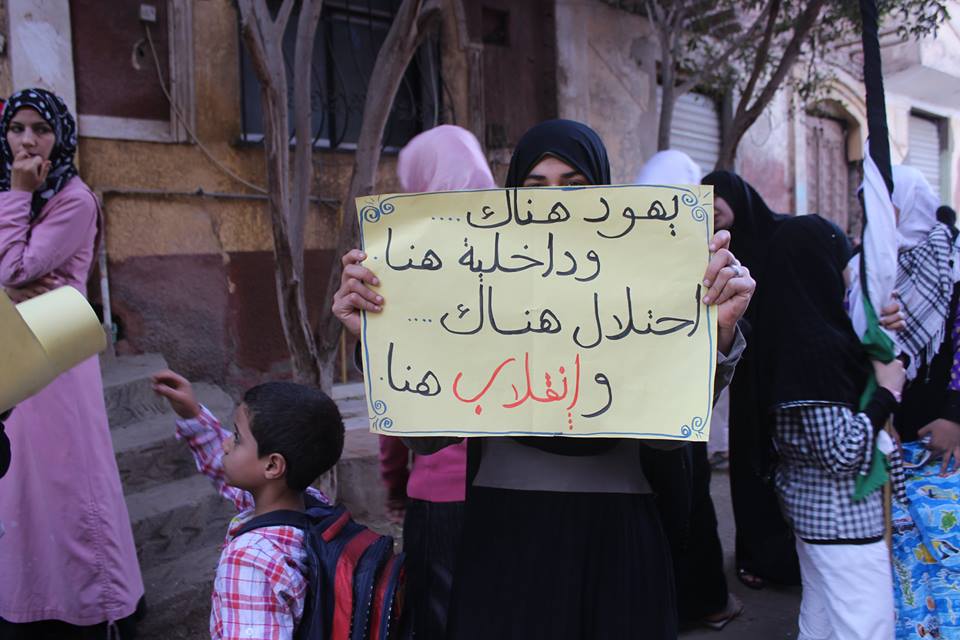 يهود هناك ....
وداخلية هنا.
احتلال هناك ....
وإنقلاب هنا.